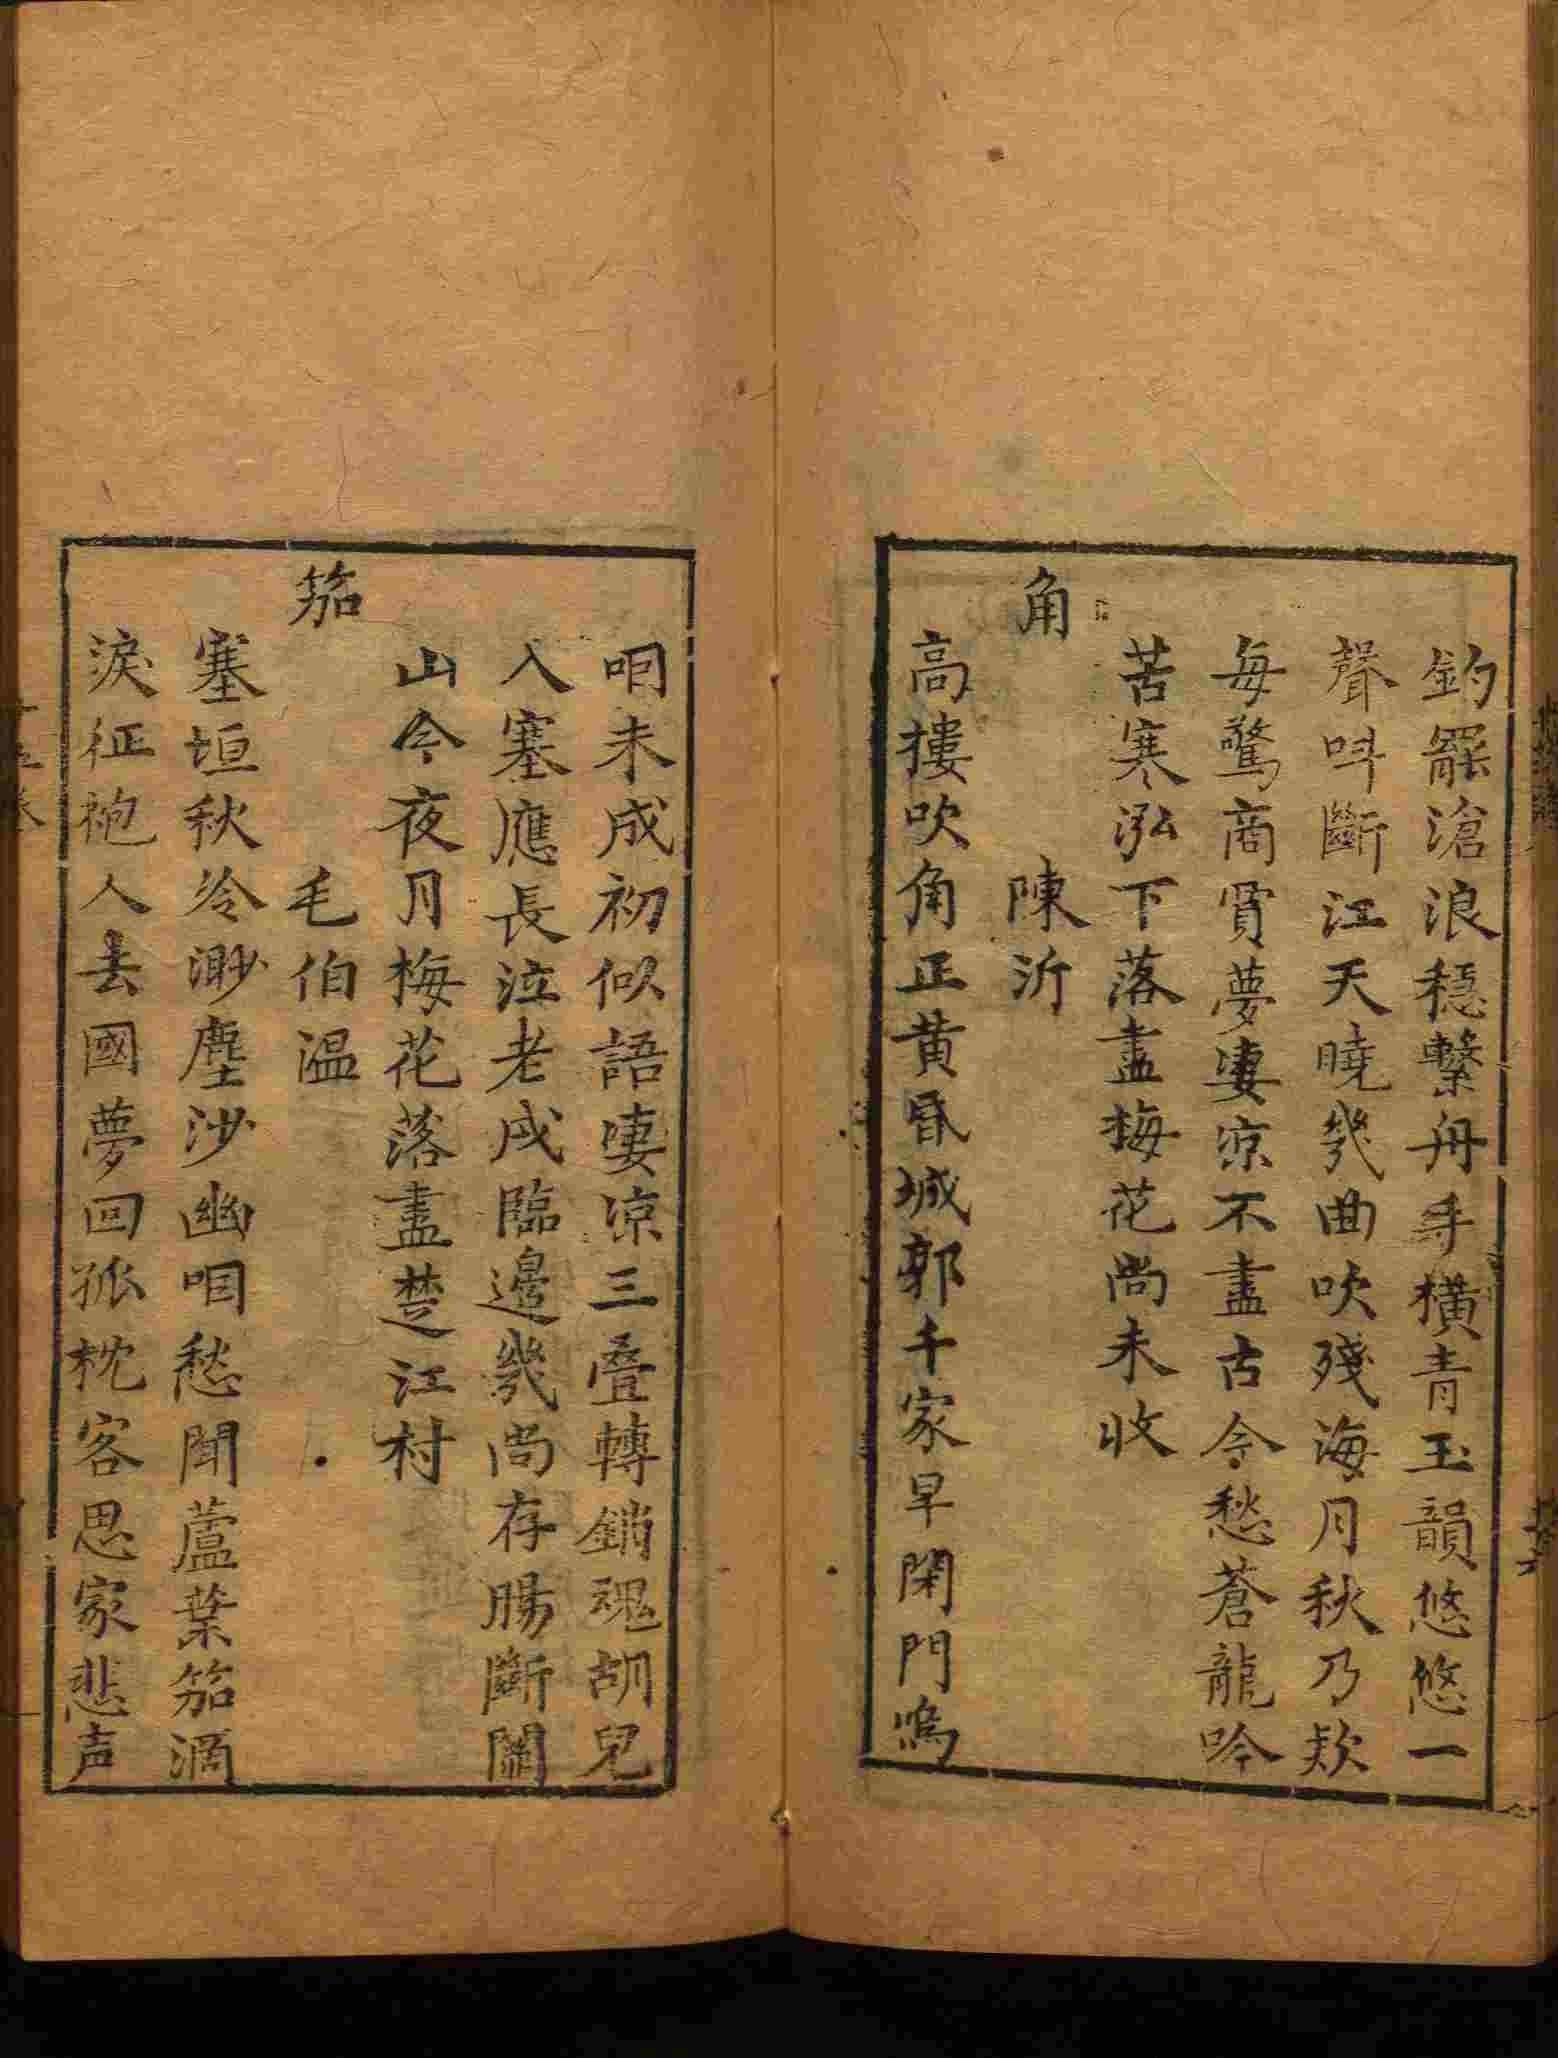 釣罷滄浪穩繫舟手橫青玉韻悠悠一
聲呌斷江天曉幾曲吹殘海月秋乃欵
每驚商賈夢凄凉不盡古今愁蒼龍吟
苦寒泓下落盡梅花尚未收
角
陳沂
高摟吹角正黄昏城郭千家早閑門嗚
咽未成初似語凄凉三疊轉銷魂胡兒
入塞應長泣老戍臨邊幾尚存腸斷關
山今夜月梅花落盡楚江村
笳
毛伯温
塞垣秋冷渺塵沙幽咽愁聞蘆葉笳滴
淚征袍人去國夢回孤枕客思家悲声